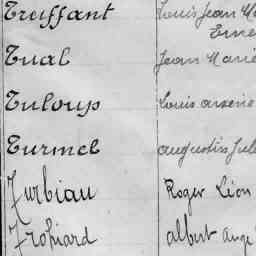 Treffant Louis Jean Ma
Erne
Tual Jean Marie
Tuloup Louis arsène
Turmel augustin Jul
Turbiau Roger Léon
Tropiard albert ange